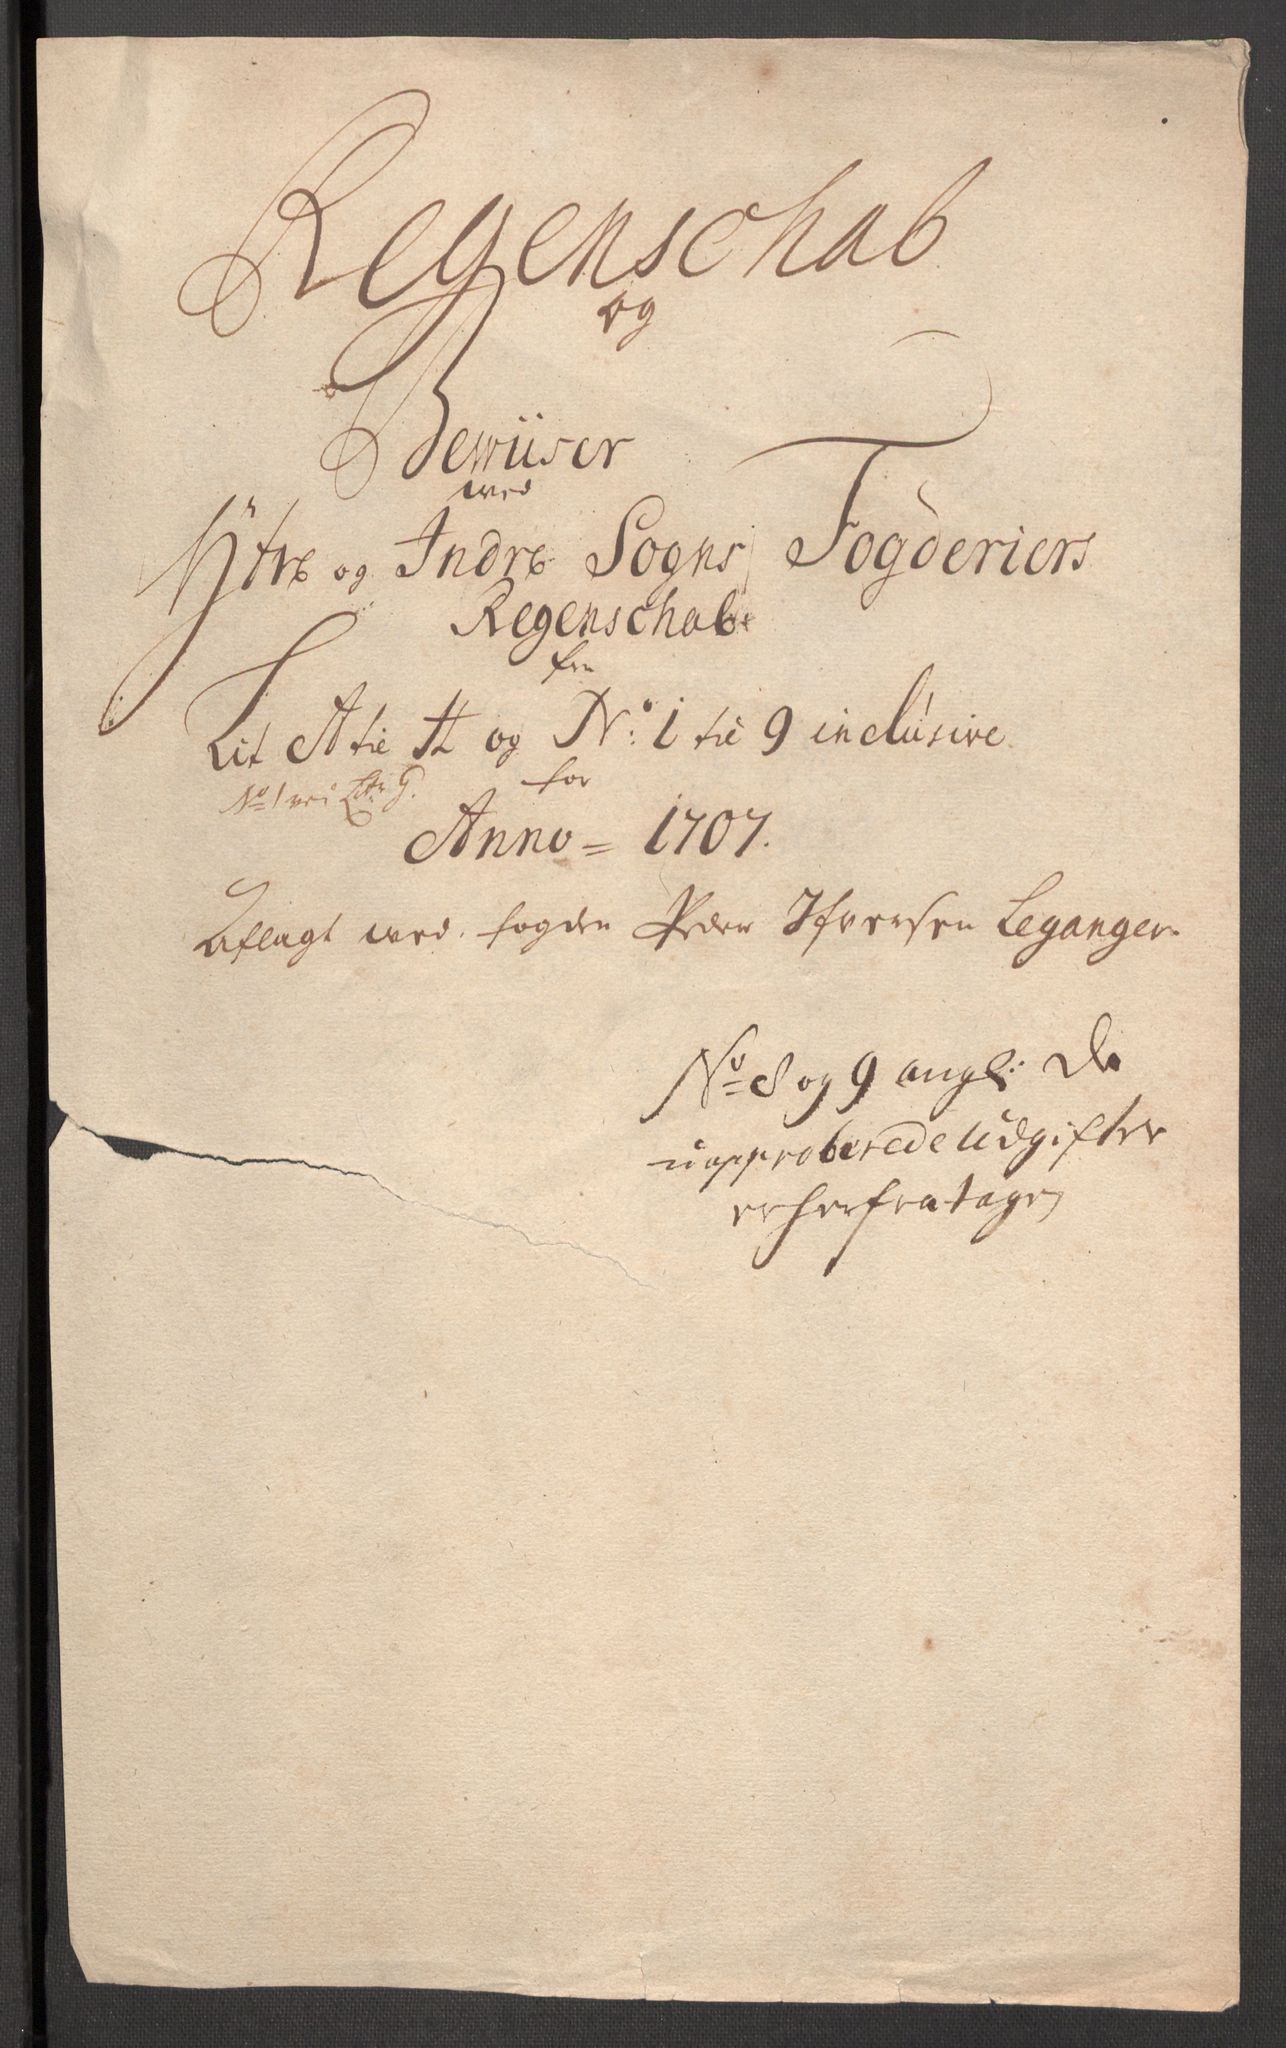 Regenschab
og
Bewiiser
med
Ÿtre og Indre Sogns Fogderiers
Regenschab
fra
Lit A til H og No: 1 til 9 inclusive
No 1 ved Litr G.
for
Anno = 1707.
Aflagt med fogden Peder Ifversen Leganger
No 8 og 9 angl: De
uapproberede Udgifter
er herfra tagen